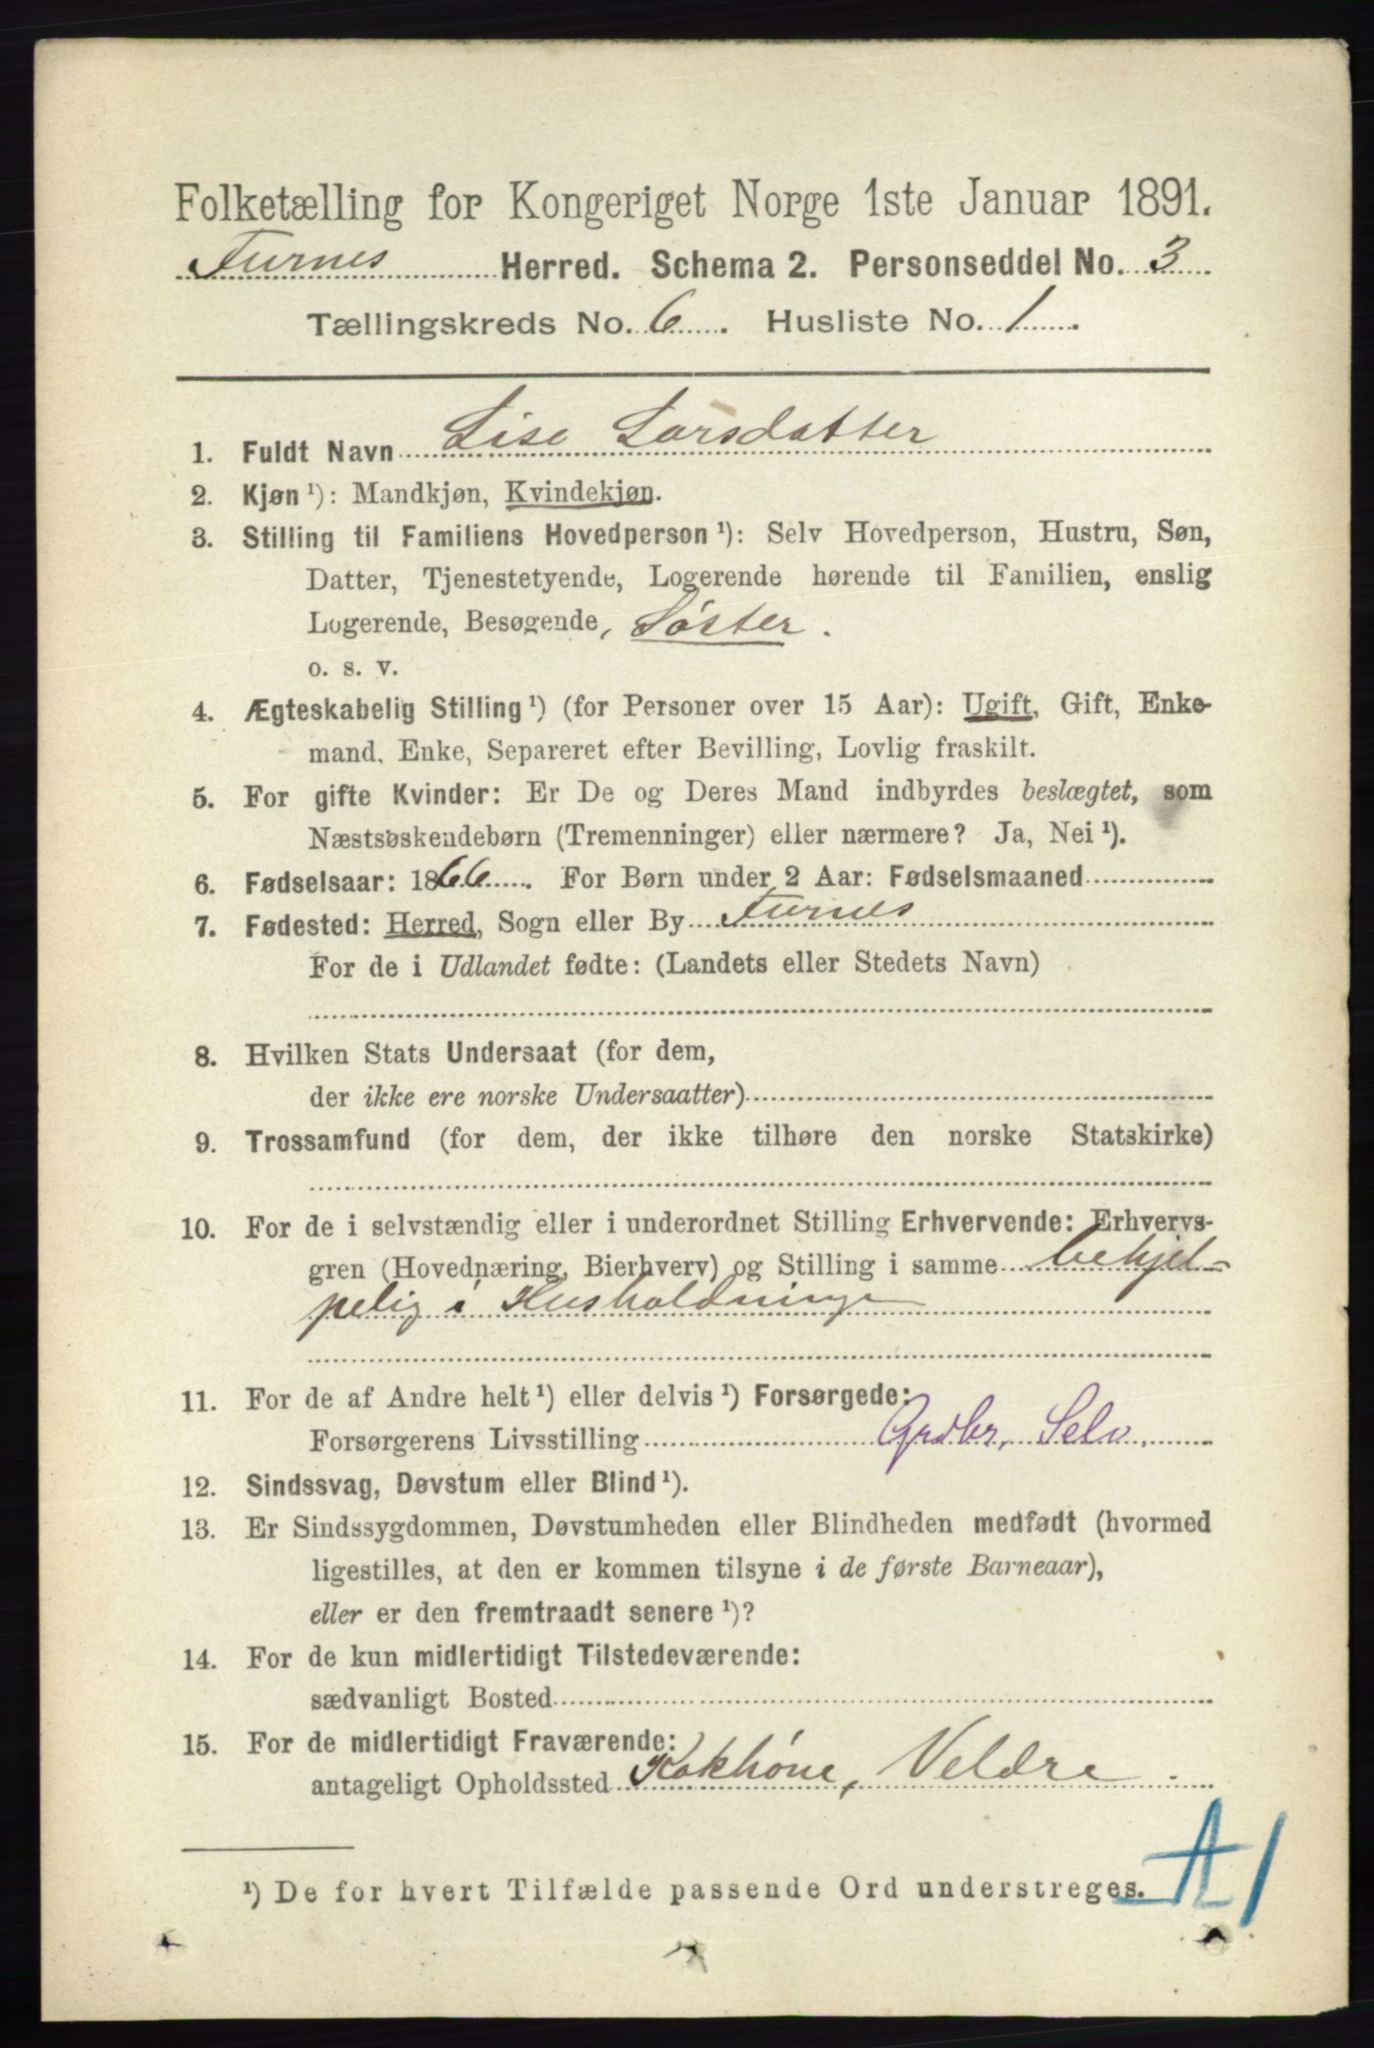 Folketælling for Kongeriget Norge 1ste Januar 1891.
Furnes Herred. Schema 2. Personseddel No. 3
Tællingskreds No. 6. Husliste No. 1.
1. Fuldt Navn Lise Larsdatter
2. Kjøn ¹): Mandkjøn, Kvindekjøn.
3. Stilling til Familiens Hovedperson ¹): Selv Hovedperson, Hustru, Søn,
Datter, Tjenestetyende, Logerende hørende til Familien, enslig
Logerende, Besøgende, Söster.
o. s. v.
4. Ægteskabelig Stilling ¹) (for Personer over 15 Aar): Ugift, Gift, Enke-
mand, Enke, Separeret efter Bevilling, Lovlig fraskilt.
5. For gifte Kvinder: Er De og Deres Mand indbyrdes beslægtet, som
Næstsøskendebørn (Tremenninger) eller nærmere? Ja, Nei ¹).
6. Fødselsaar: 1866. For Børn under 2 Aar: Fødselsmaaned
7. Fødested: Herred, Sogn eller By Furnes
For de i Udlandet fødte: (Landets eller Stedets Navn)
8. Hvilken Stats Undersaat (for dem,
der ikke ere norske Undersaatter)
9. Trossamfund (for dem, der ikke tilhøre den norske Statskirke)
10. For de i selvstændig eller i underordnet Stilling Erhvervende: Erhvervs-
gren (Hovednæring, Bierhverv) og Stilling i samme behjel-
pelig i Husholdninge
11. For de af Andre helt ¹) eller delvis ¹) Forsørgede:
Forsørgerens Livsstilling Grdbr. Selv.
12. Sindssvag, Døvstum eller Blind ¹).
13. Er Sindssygdommen, Døvstumheden eller Blindheden medfødt (hvormed
ligestilles, at den er kommen tilsyne i de første Barneaar),
eller er den fremtraadt senere ¹)?
14. For de kun midlertidigt Tilstedeværende:
sædvanligt Bosted
15. For de midlertidigt Fraværende:
antageligt Opholdssted Kokhöne, Veldre.
¹) De for hvert Tilfælde passende Ord understreges.
A1